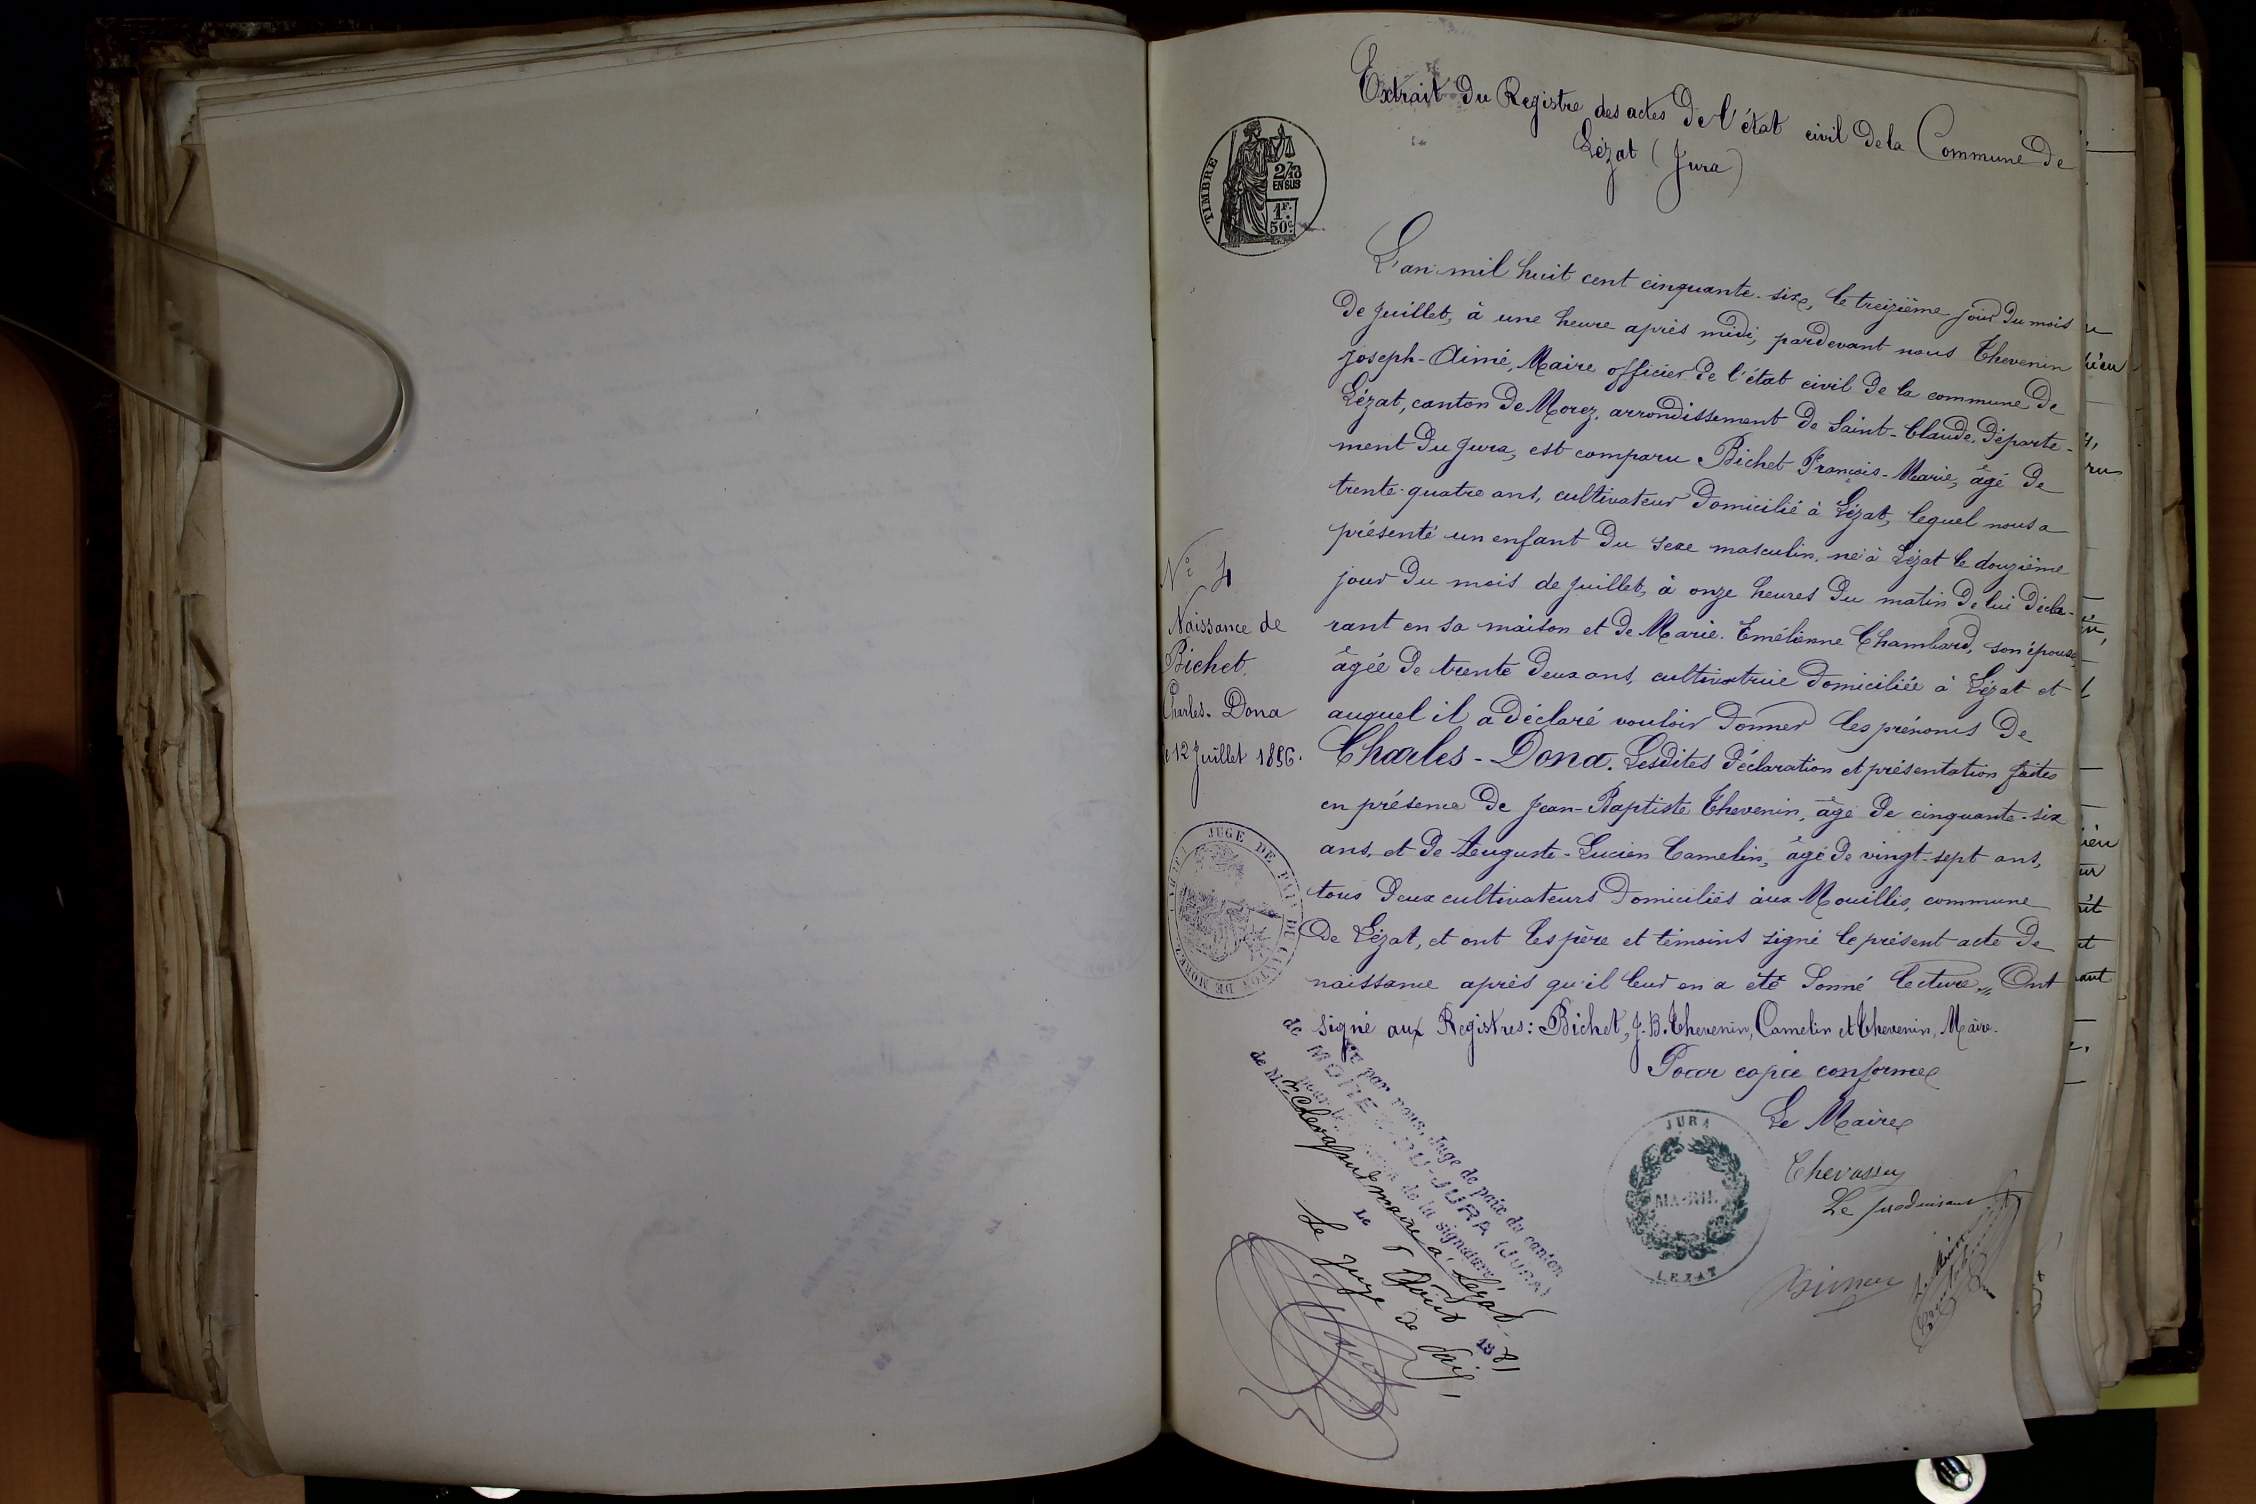 Extrait du Registre des actes de l'état civil de la Commune de
Lézat (Jura)
TIMBRE
2/10
EN SUS
1F.
50c
L'an mil huit cent cinquante-six, le treizième jour du mois
de Juillet, à une heure après midi, pardevant nous Thevenin
Joseph-Aimé, Maire officier de l'état civil de la commune de
Lézat, canton de Morez, arrondissement de Saint-Claude, départe-
ment du Jura, est comparu Bichet François-Marie, âgé de
trente-quatre ans, cultivateur domicilié à Lézat, lequel nous a
présenté un enfant du sexe masculin, né à Lézat le douzième
jour du mois de Juillet, à onze heures du matin de lui décla-
rant en sa maison et de Marie-Emélienne Chambard, son épouse,
âgée de trente deux ans, cultivatrice domiciliée à Lézat et
auquel il a déclaré vouloir donner les prénoms de
Charles-Dona. Lesdites déclaration et présentation faites
en présence de Jean-Baptiste Thevenin, âgé de cinquante-six
ans, et de Auguste-Lucien Camelin, âgé de vingt-sept ans,
tous deux cultivateurs domiciliés aux Mouilles, commune
de Lézat, et ont les père et témoins signé le présent acte de
naissance après qu'il leur en a été donné lecture. Ont
signé aux Registres: Bichet, J.B. Thevenin, Camelin et Thevenin, Maire.
Pour copie conforme
Le Maire
Chevassu
Le produisant
N° 4
Naissance de
Bichet
Charles-Dona
12 Juillet 1856.
JUGE DE PAIX DU CANTON DE MOREZ
JURA
MAIRIE
LEZAT
par nous, Juge de paix du canton
de MOREZ-DU-JURA (JURA)
pour la de la signature
de M. Chevassu maire à Lézat
Le 5 Août 1881
Le Juge de Paix,